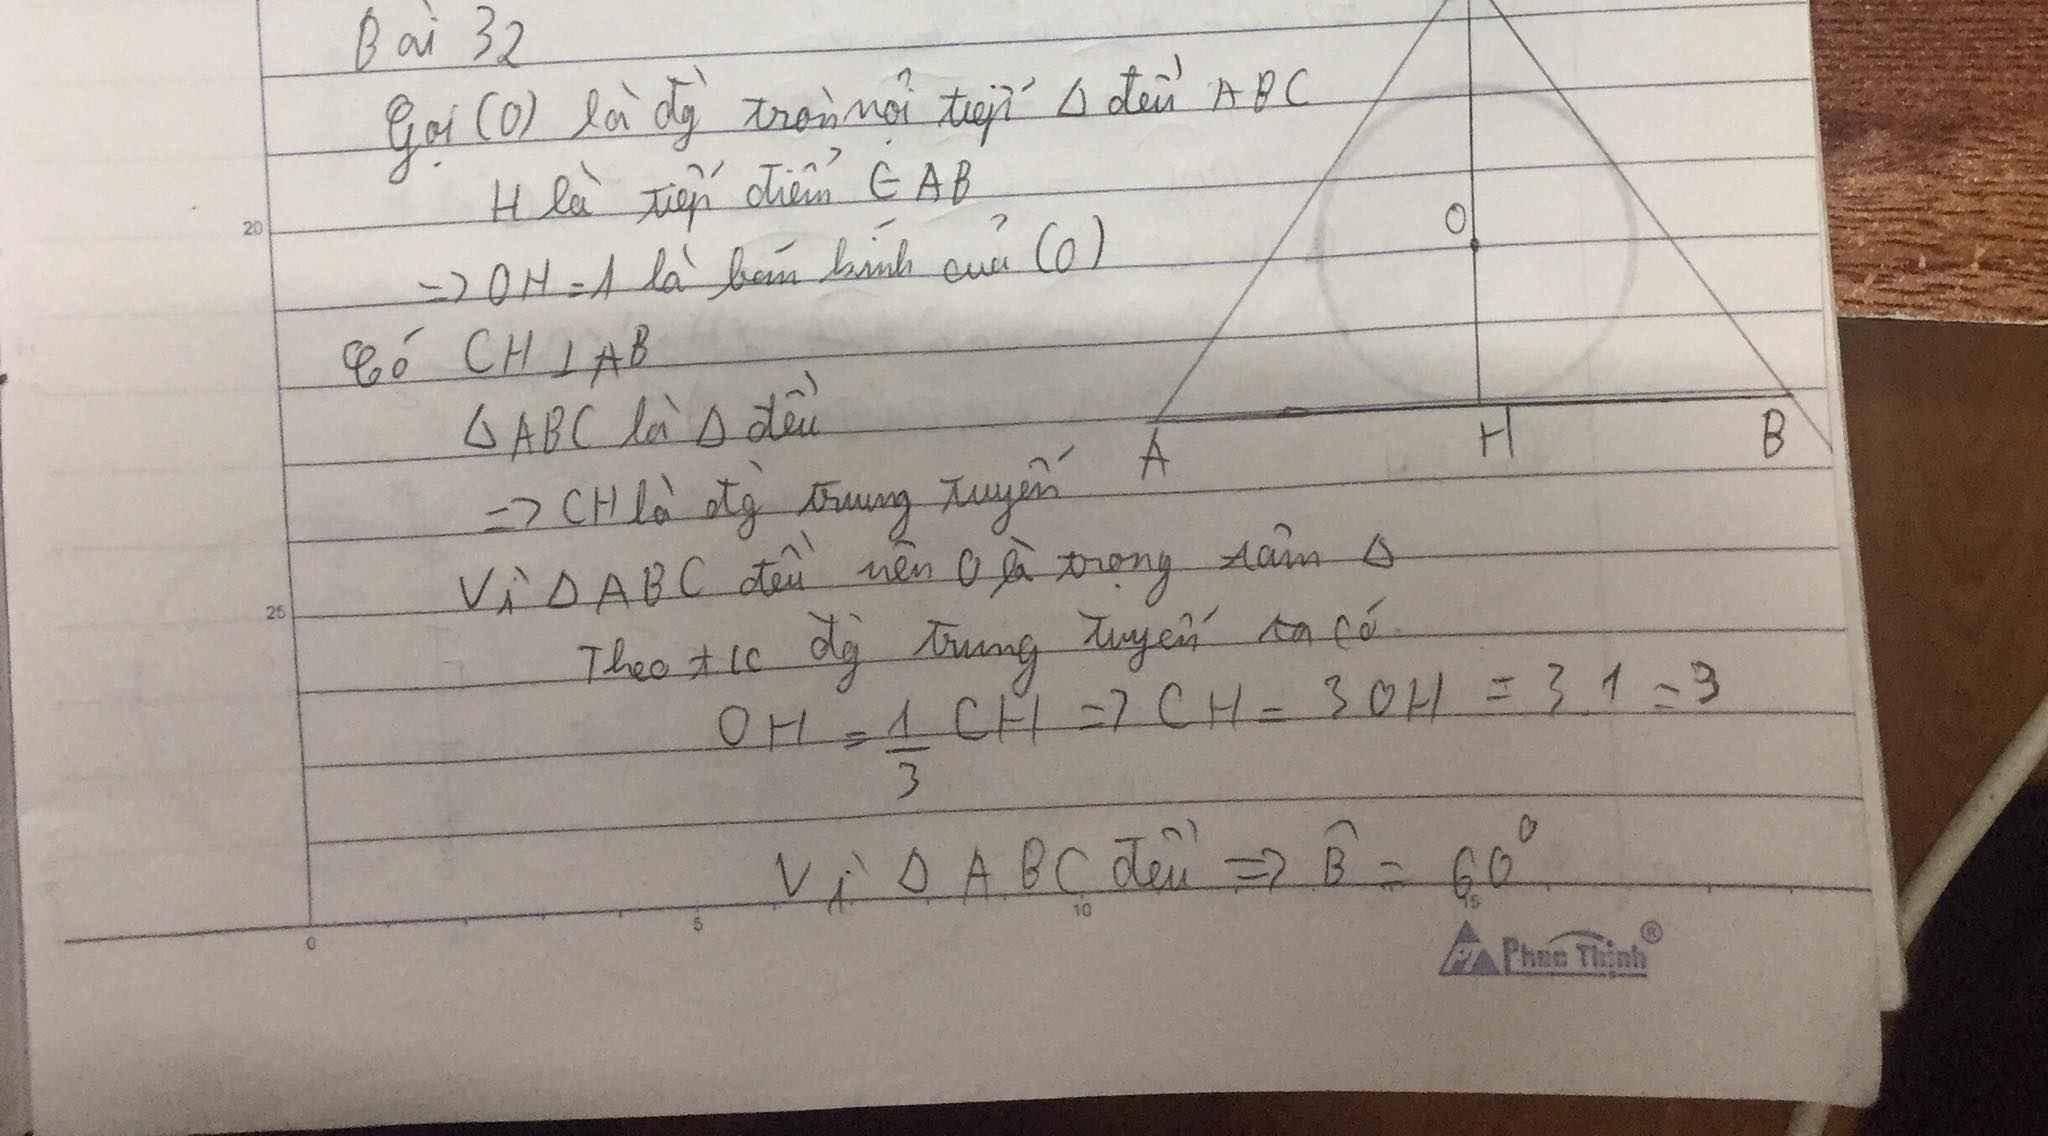 Bài 32
Gọi (O) là đg̀ tròn nội tiếp Δ đều ABC
H là tiếp điểm ∈ AB
20
O
=> OH = 1 là bán kính của (O)
Có CH ⊥ AB
Δ ABC là Δ đều
A H B
=> CH là đg̀ trung tuyến
Vì Δ ABC đều nên O là trọng tâm Δ
25
Theo t/c đg̀ trung tuyến ta có
OH = 1/3 CH => CH = 3OH = 3.1 = 3
Vì Δ ABC đều => B̂ = 60°
0 5 10 15
Phuc Thịnh ®